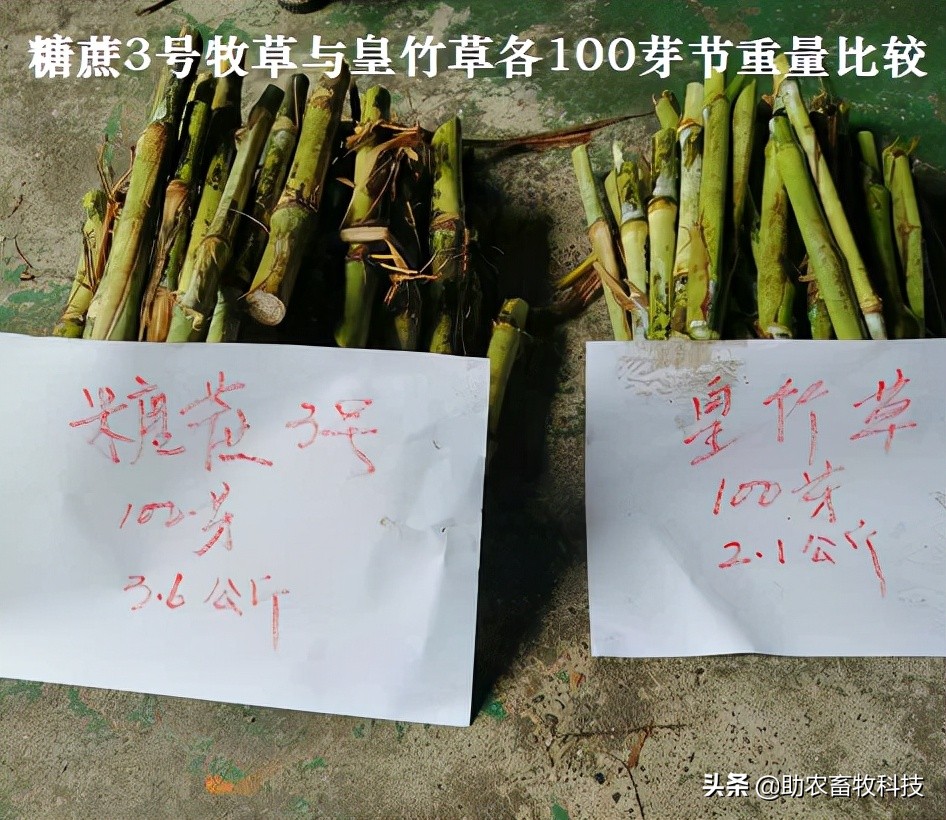 糖蔗3号牧草与皇竹草各100芽节重量比较
糖蔗3号
100芽
3.6公斤
皇竹草
100芽
2.1公斤
头条 @助农畜牧科技